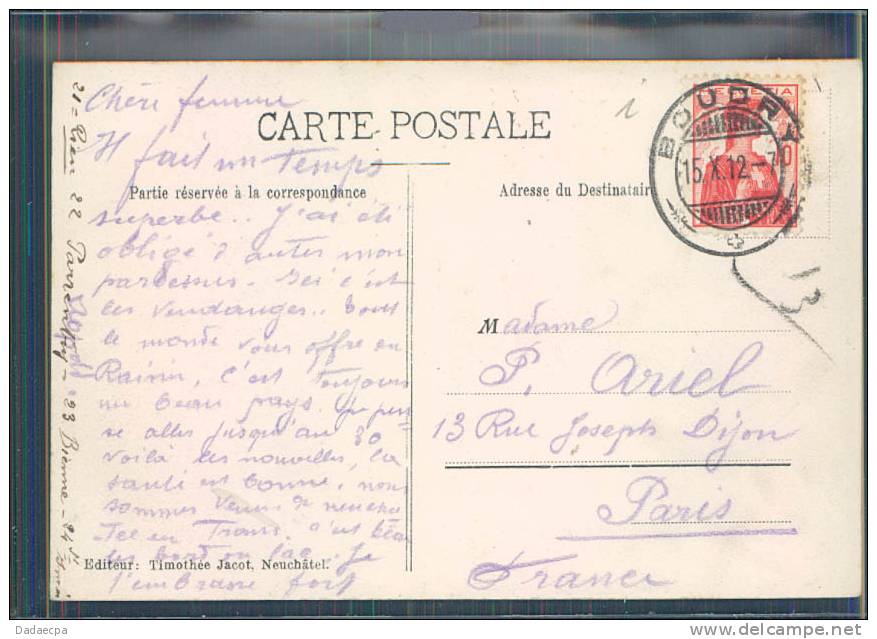 Chère femme
CARTE POSTALE
Il fait un Temps
Partie réservée à la correspondance
superbe.. J'ai été
obligé d'auter mon
pardessus. Ici c'est
les vendanges.. tout
le monde vous offre du
Raisin, c'est toujours
un beau pays. Je pen-
se aller jusqu'au 30
voilà les nouvelles, la
santé est bonne, nous
sommes venus de neucha
-Tel en Tram. c'est beau
les bord du lac. Je
Editeur: Timothée Jacot, Neuchâtel.
t'embrasse fort
21 = 22 Porrentruy - 23 Bienne - 24 St
HELVETIA
BOUDRY
15.X.12.-7
Adresse du Destinataire
13
Madame
P. Ariel
13 Rue Joseph Dijon
Paris
France
Dadaecpa